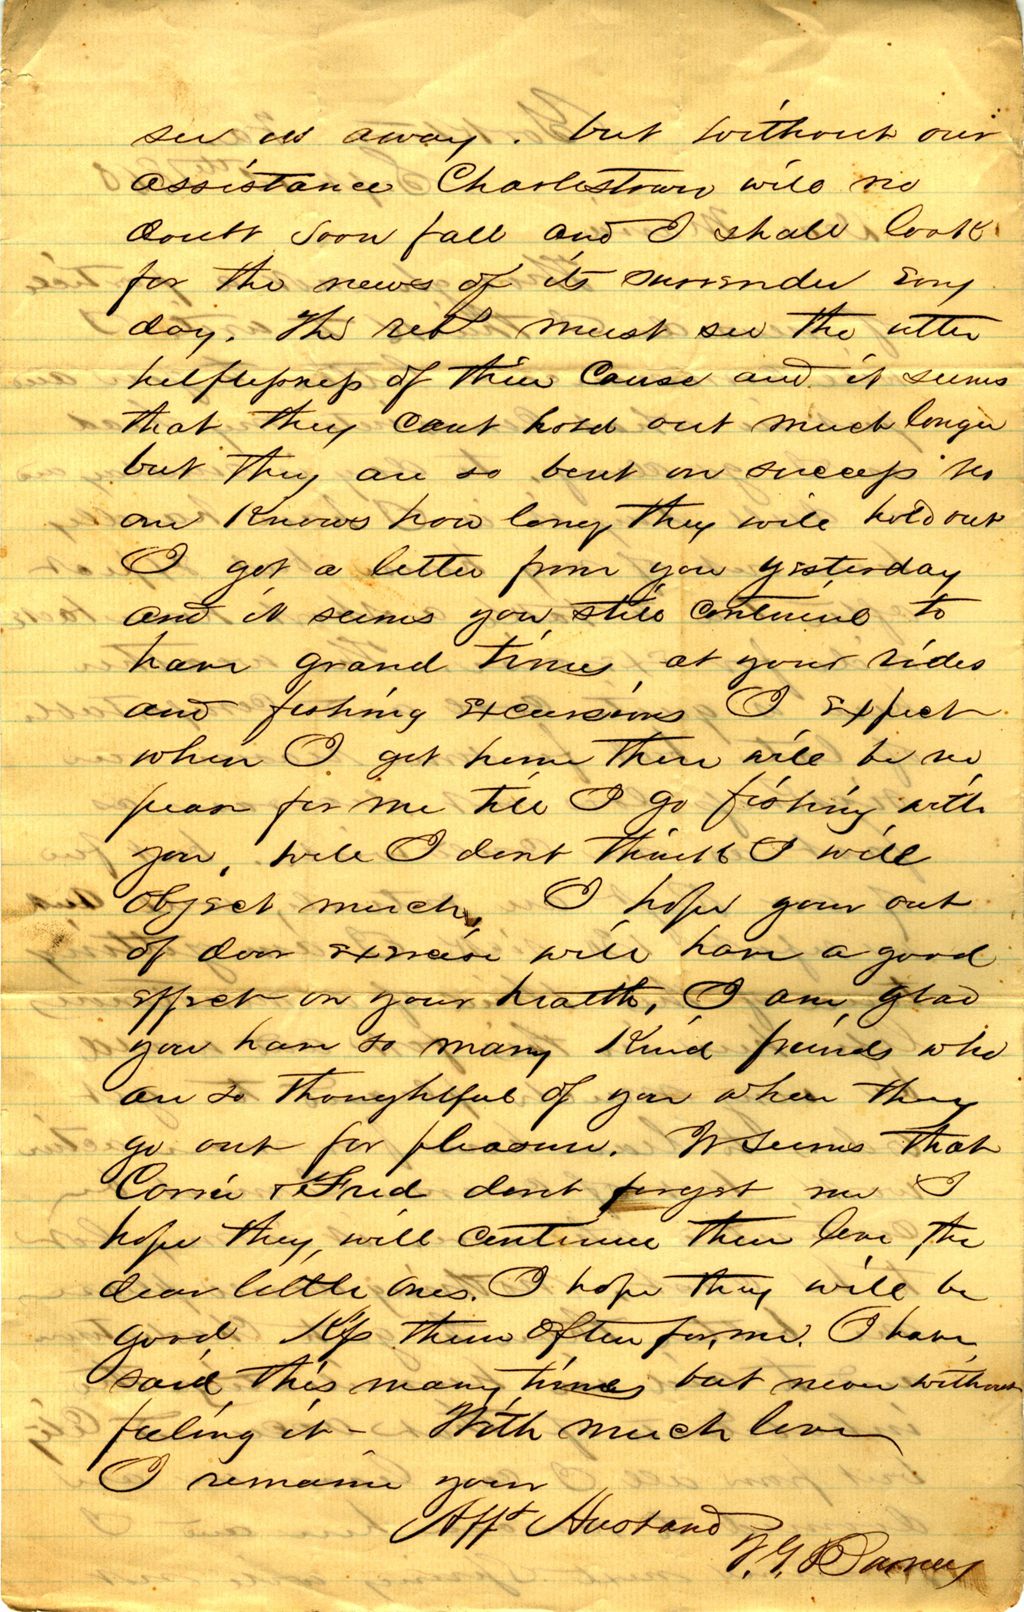 see us away. but without our
assistance Charlestown will no
doubt soon fall and I shall look
for the news of its surrender every
day. The reb must see the utter
helplessness of their Cause and it seems
that they cant hold out much longer
but they are so bent on success no
one knows how long they will hold out
I got a letter from you yesterday
and it seems you still continue to
have grand times at your rides
and fishing excursions I expect
when I get home there will be no
peace for me till I go fishing with
you, well I dont think I will
object much, I hope your out
of door exercise will have a good
effect on your health, I am glad
you have so many kind freinds who
are so thoughtful of you when they
go out for pleasure. It seems that
Carrie & Fred dont forget me I
hope they will continue their love the
dear little ones. I hope they will be
good Kiss them often for me. I have
said this many times but never without
feeling it - With much love
I remain your
Afft Husband
V. G. Barney